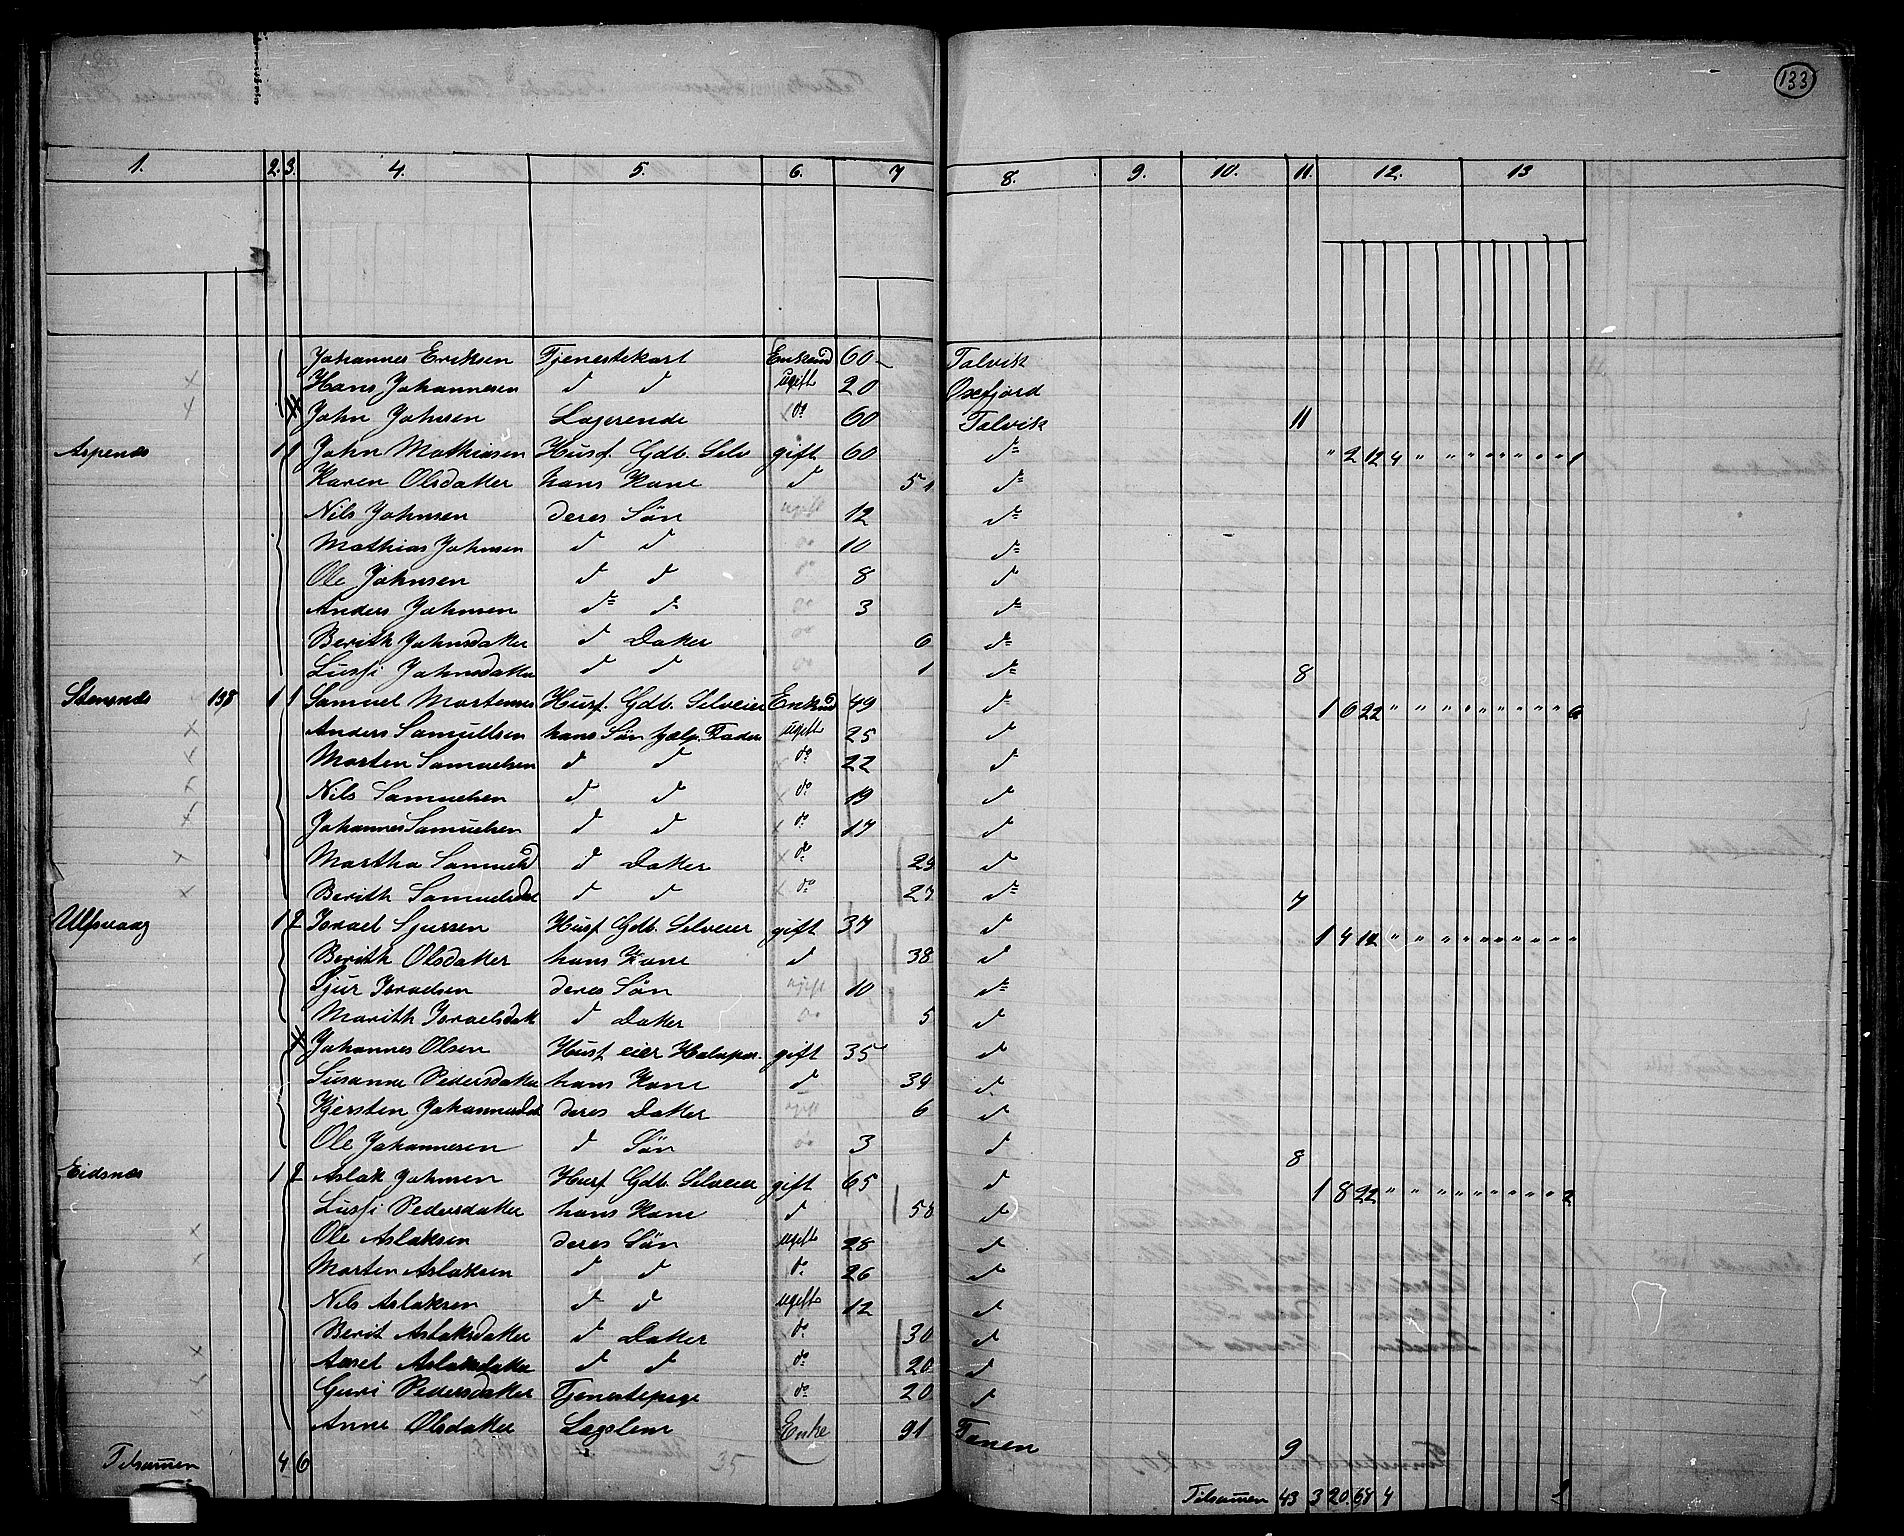 133
1. 2. 3. 4. 5. 6. 7 8. 9. 10. 11. 12. 13
Johannes Eriksen Tjenestekarl Enkemd 60 Talvik
Hans Johannesen d d ugift 20 Oxefjord
John Johnsen Logerende do 60 Talvik 11
Aspenes 1 1 John Mathiesen Husf. Gdb. Selv gift 60 do " 2 12 4 " " " " " " " " " 1
Karen Olsdatter hans Kone d 51 do
Nils Johnsen deres Søn ugift 12 do
Mathias Johnsen d d do 10 do
Ole Johnsen d d do 8 d
Anders Johnsen do do do 3 do
Berith Johnsdatter d Datter do 6 do
Lussi Johnsdatter d d do 1 do 8
Stensnes 198 1 1 Samuel Mortensen Husf. Gdb. Selveier Enkemd 49 do 1 6 22 " " " " " " " " " " 6
Anders Samuelsen hans Søn hjelp. Fader ugift 25 d
Morten Samuelsen d d do 22 d
Nils Samuelsen d d do 19 d
Johannes Samuelsen d d do 17 d
Martha Samuelsd d Datter do 29 d
Berith Samuelsdat d d do 27 do 7
Ulfsvaag 1 2 Israel Sjursen Husf Gdb. Selveier gift 37 d 1 4 12 " " " " " " " " " "
Berith Olsdatter hans Kone d 38 d
Sjur Israelsen deres Søn ugift 10 do
Marith Israelsdatt d Datter do 5 d
Johannes Olsen Husf eier Halvpar. gift 35 d
Susanne Pedersdatter hans Kone d 39 d
Kjersten Johannesdat deres Datter ugift 6 d
Ole Johannesen d Søn do 3 d 8
Eidsnes 1 2 Aslak Johnsen Husf Gdb. Selveier gift 65 d 1 8 22 " " " " " " " " " 2
Lussi Pedersdatter hans Kone d 58 d
Ole Aslaksen deres Søn ugift 28 d
Morten Aslaksen d d do 26 d
Nils Aslaksen d d ugift 12 d
Berit Aslaksdatter d Datter do 30 d
Aaret Aslaksdatter d d do 20 d
Guri Pedersdatter Tjenestepige do 20 d
Anne Olsdatter Lagslem Enke 91 Tanen 9
Tilsammen 4 6 35
Tilsammen 43 3 20 68 4